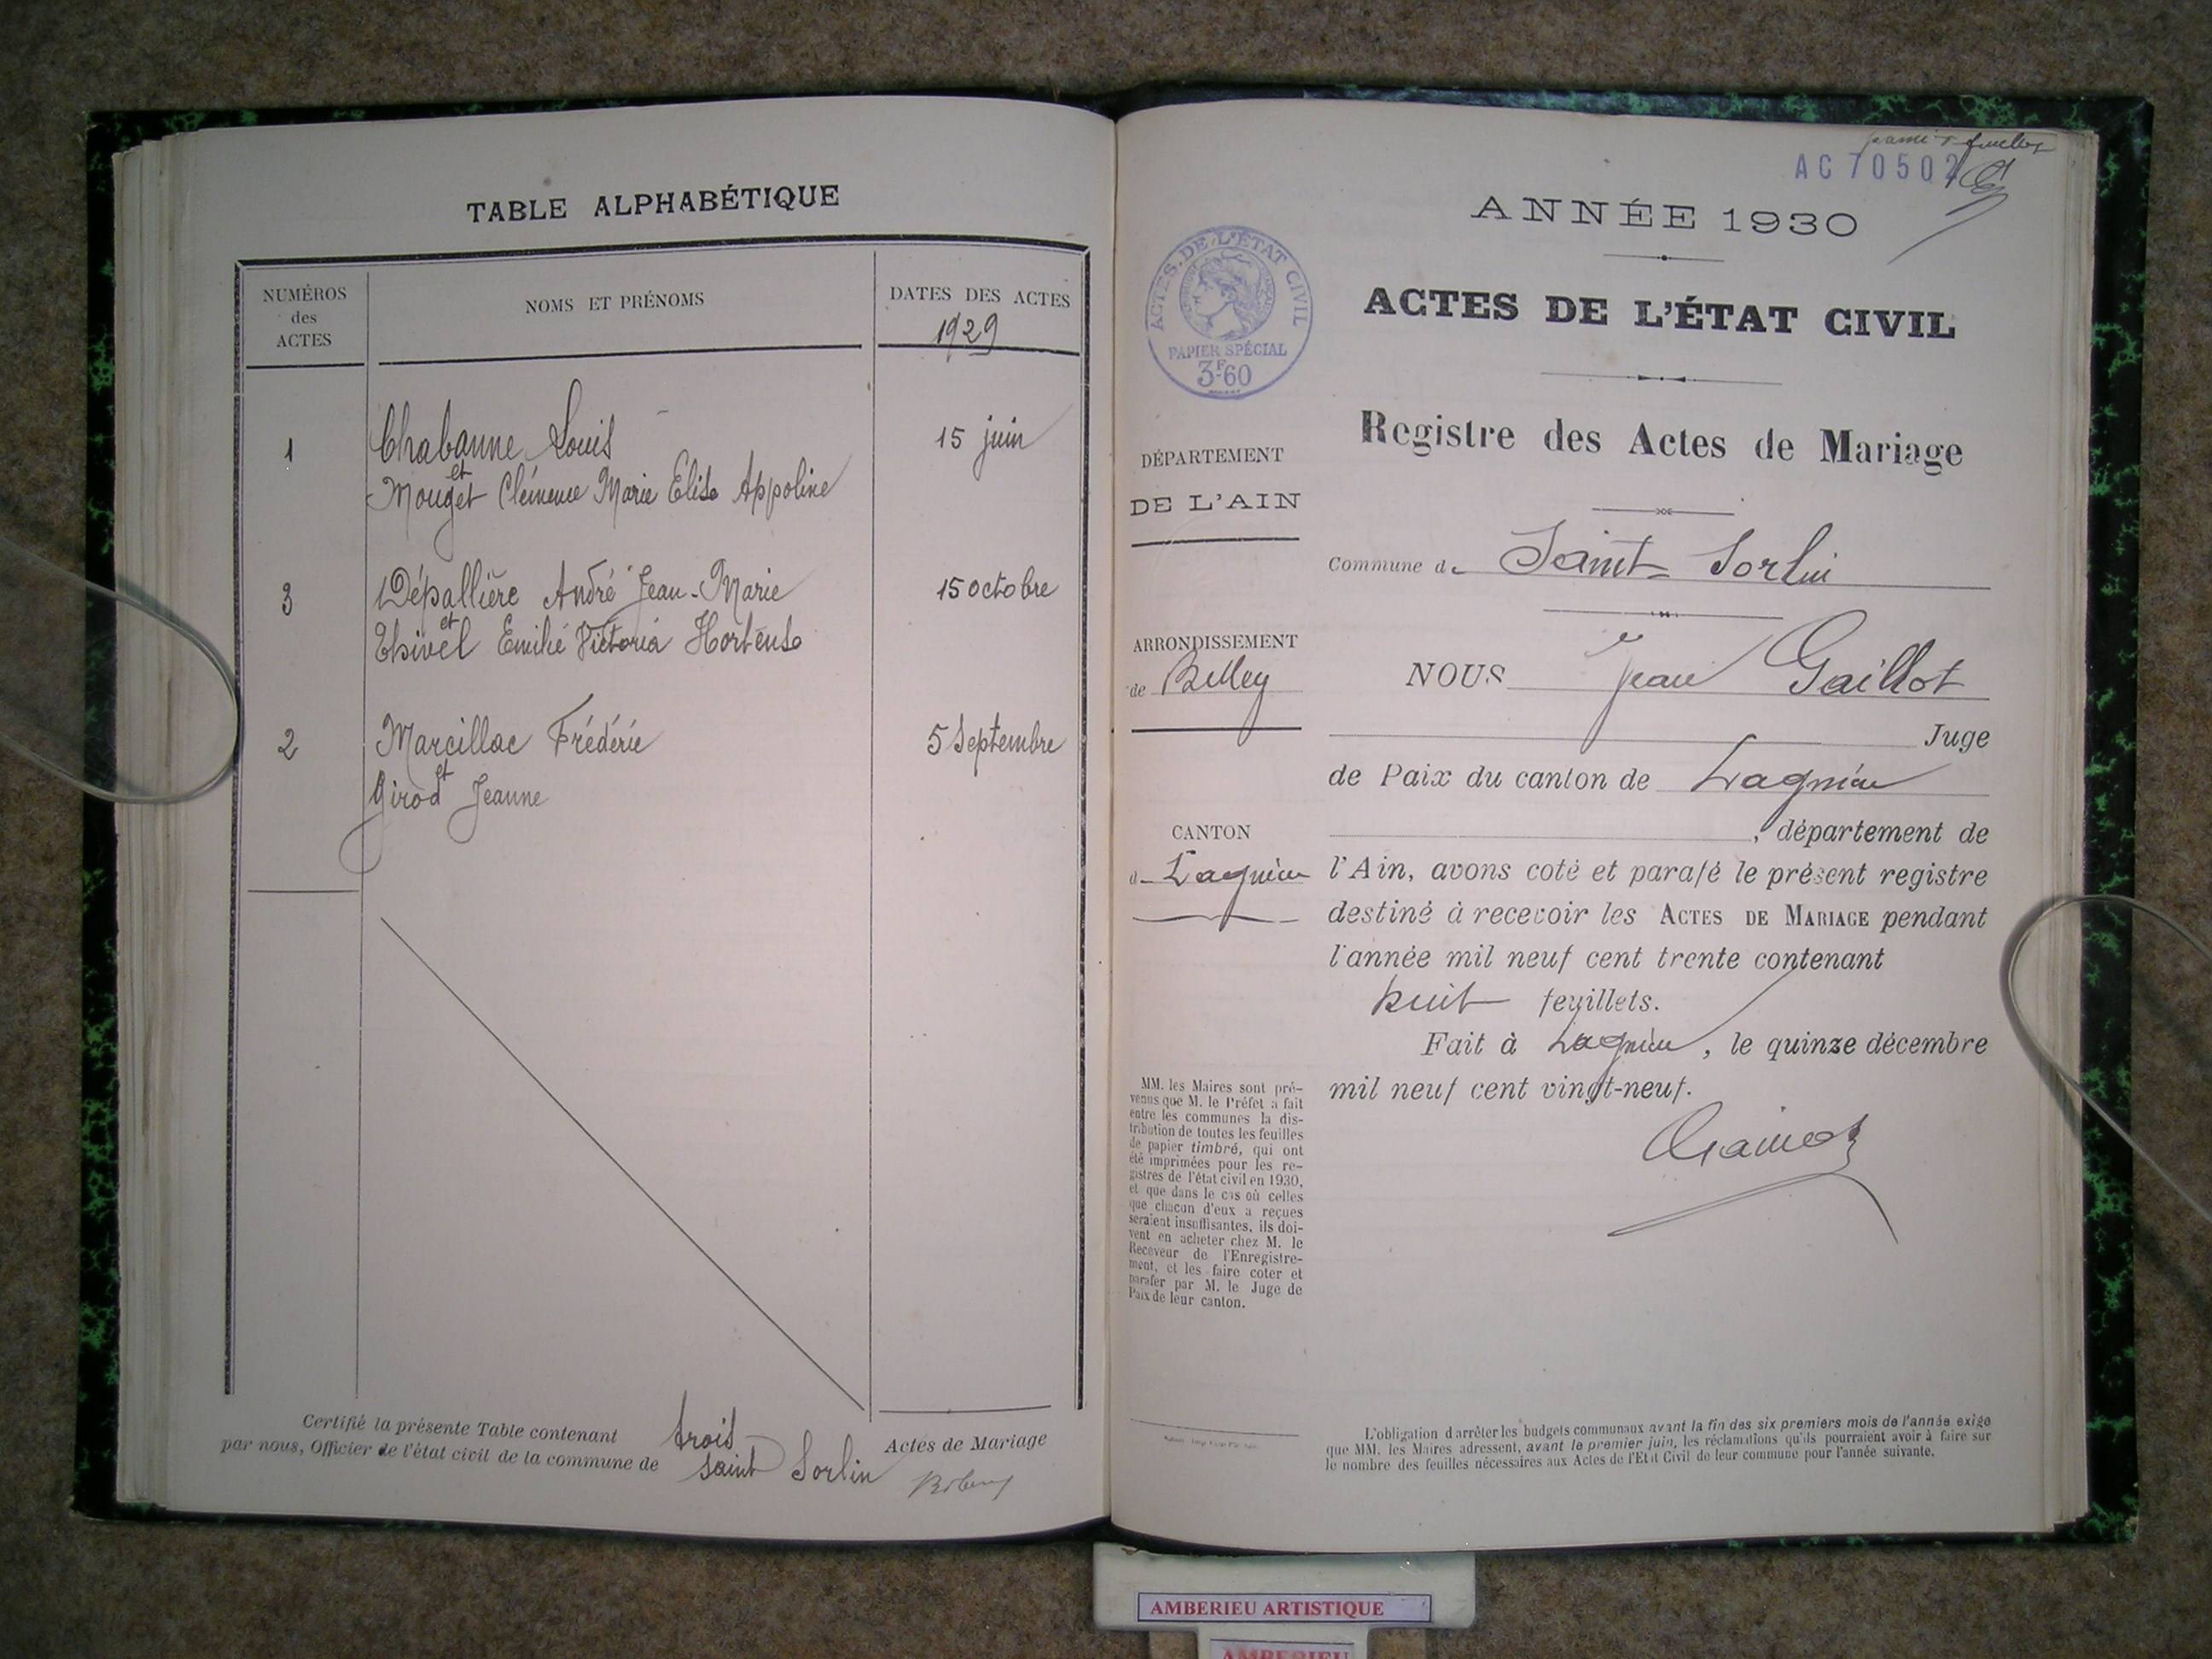 TABLE ALPHABÉTIQUE
NUMÉROS
des
ACTES
NOMS ET PRÉNOMS
DATES DES ACTES
1929
1
Chabanne Louis
et
Mouget Clémence Marie Elise Appoline
15 juin
3
Dépallière André Jean-Marie
et
Thivel Emilie Victoria Hortense
15 octobre
2
Marcillac Frédéric
et
Girod Jeanne
5 Septembre
Certifié la présente Table contenant trois Actes de Mariage
par nous, Officier de l'état civil de la commune de Saint Sorlin
AC 70502
ANNÉE 1930
ACTES DE L'ÉTAT CIVIL
PAPIER SPÉCIAL
3F60
ACTES DE L'ÉTAT CIVIL
Registre des Actes de Mariage
DÉPARTEMENT
DE L'AIN
Commune de Saint-Sorlin
ARRONDISSEMENT
de Belley
NOUS Jean Gaillot
Juge
de Paix du canton de Lagnieu
CANTON
de Lagnieu
, département de
l'Ain, avons coté et parafé le présent registre
destiné à recevoir les ACTES DE MARIAGE pendant
l'année mil neuf cent trente contenant
huit feuillets.
Fait à Lagnieu, le quinze décembre
mil neuf cent vingt-neuf.
MM. les Maires sont pré-
venus que M. le Préfet a fait
entre les communes la dis-
tribution de toutes les feuilles
de papier timbré, qui ont
été imprimées pour les re-
gistres de l'état civil en 1930,
et que dans le cas où celles
que chacun d'eux a reçues
seraient insuffisantes, ils doi-
vent en acheter chez M. le
Receveur de l'Enregistre-
ment, et les faire coter et
parafer par M. le Juge de
Paix de leur canton.
L'obligation d'arrêter les budgets communaux avant la fin des six premiers mois de l'année exige
que MM. les Maires adressent, avant le premier juin, les réclamations qu'ils pourraient avoir à faire sur
le nombre des feuilles nécessaires aux Actes de l'Etat Civil de leur commune pour l'année suivante.
AMBERIEU ARTISTIQUE
AMBERIEU